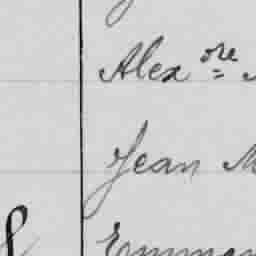 Alex.re
Jean M
Emman